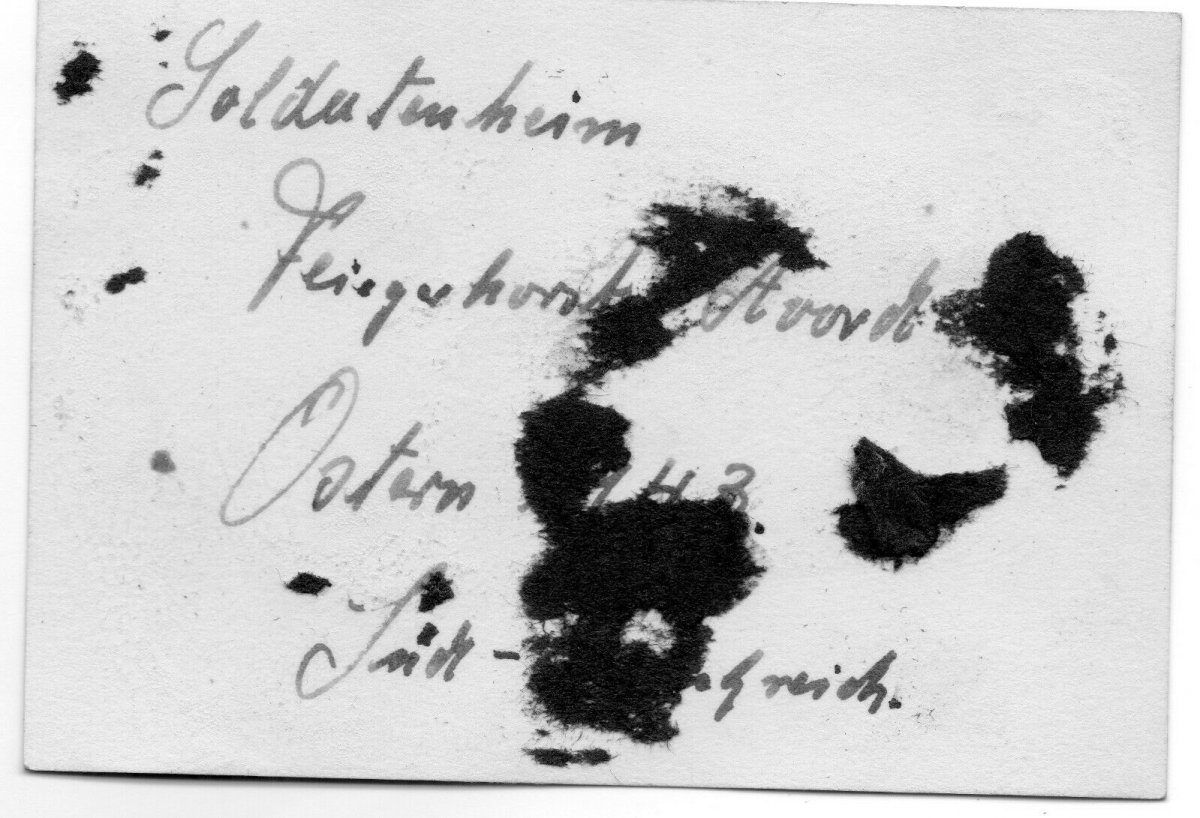 Soldatenheim
Fliegerhorst Avord
Ostern 143
Süd -